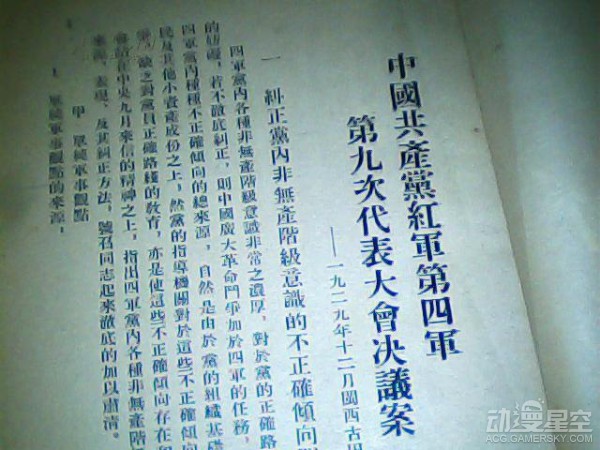 中國共產黨紅軍第四軍
第九次代表大會決議案
——一九二九年十二月閩西古田
一 糾正黨內非無產階級意識的不正確傾向問
四軍黨內各種非無產階級意識非常之濃厚，對於黨的正確路
的妨礙，若不徹底糾正，則中國廣大革命鬥爭加於四軍的任務，
四軍黨內種種不正確傾向的總來源，自然是由於黨的組織基礎
民及其他小資產成份之上，然黨的指導機關對於這些不正確傾向
爭，缺乏對黨員正確路綫的教育，亦是使這些不正確傾向存在和
會旨在中央九月來信的精神之上，指出四軍黨內各種非無產階
來源，表現，及其糾正方法，號召同志起來澈底的加以肅清。
甲 單純軍事觀點
1 單純軍事觀點的來源：
动漫星空
ACG.GAMERSKY.COM